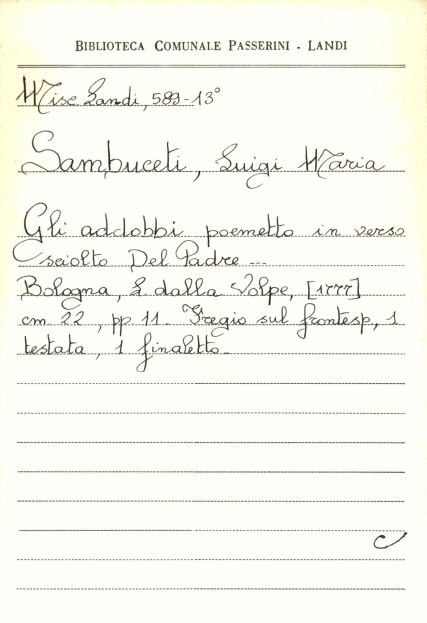 BIBLIOTECA COMUNALE PASSERINI - LANDI
Misc. Landi, 589-13°
Sambuceti, Luigi Maria
Gli addobbi poemetto in verso
sciolto Del Padre ...
Bologna, L. dalla Volpe, [1777]
cm 22, pp 11. Fregio sul frontesp., 1
testata, 1 finaletto.